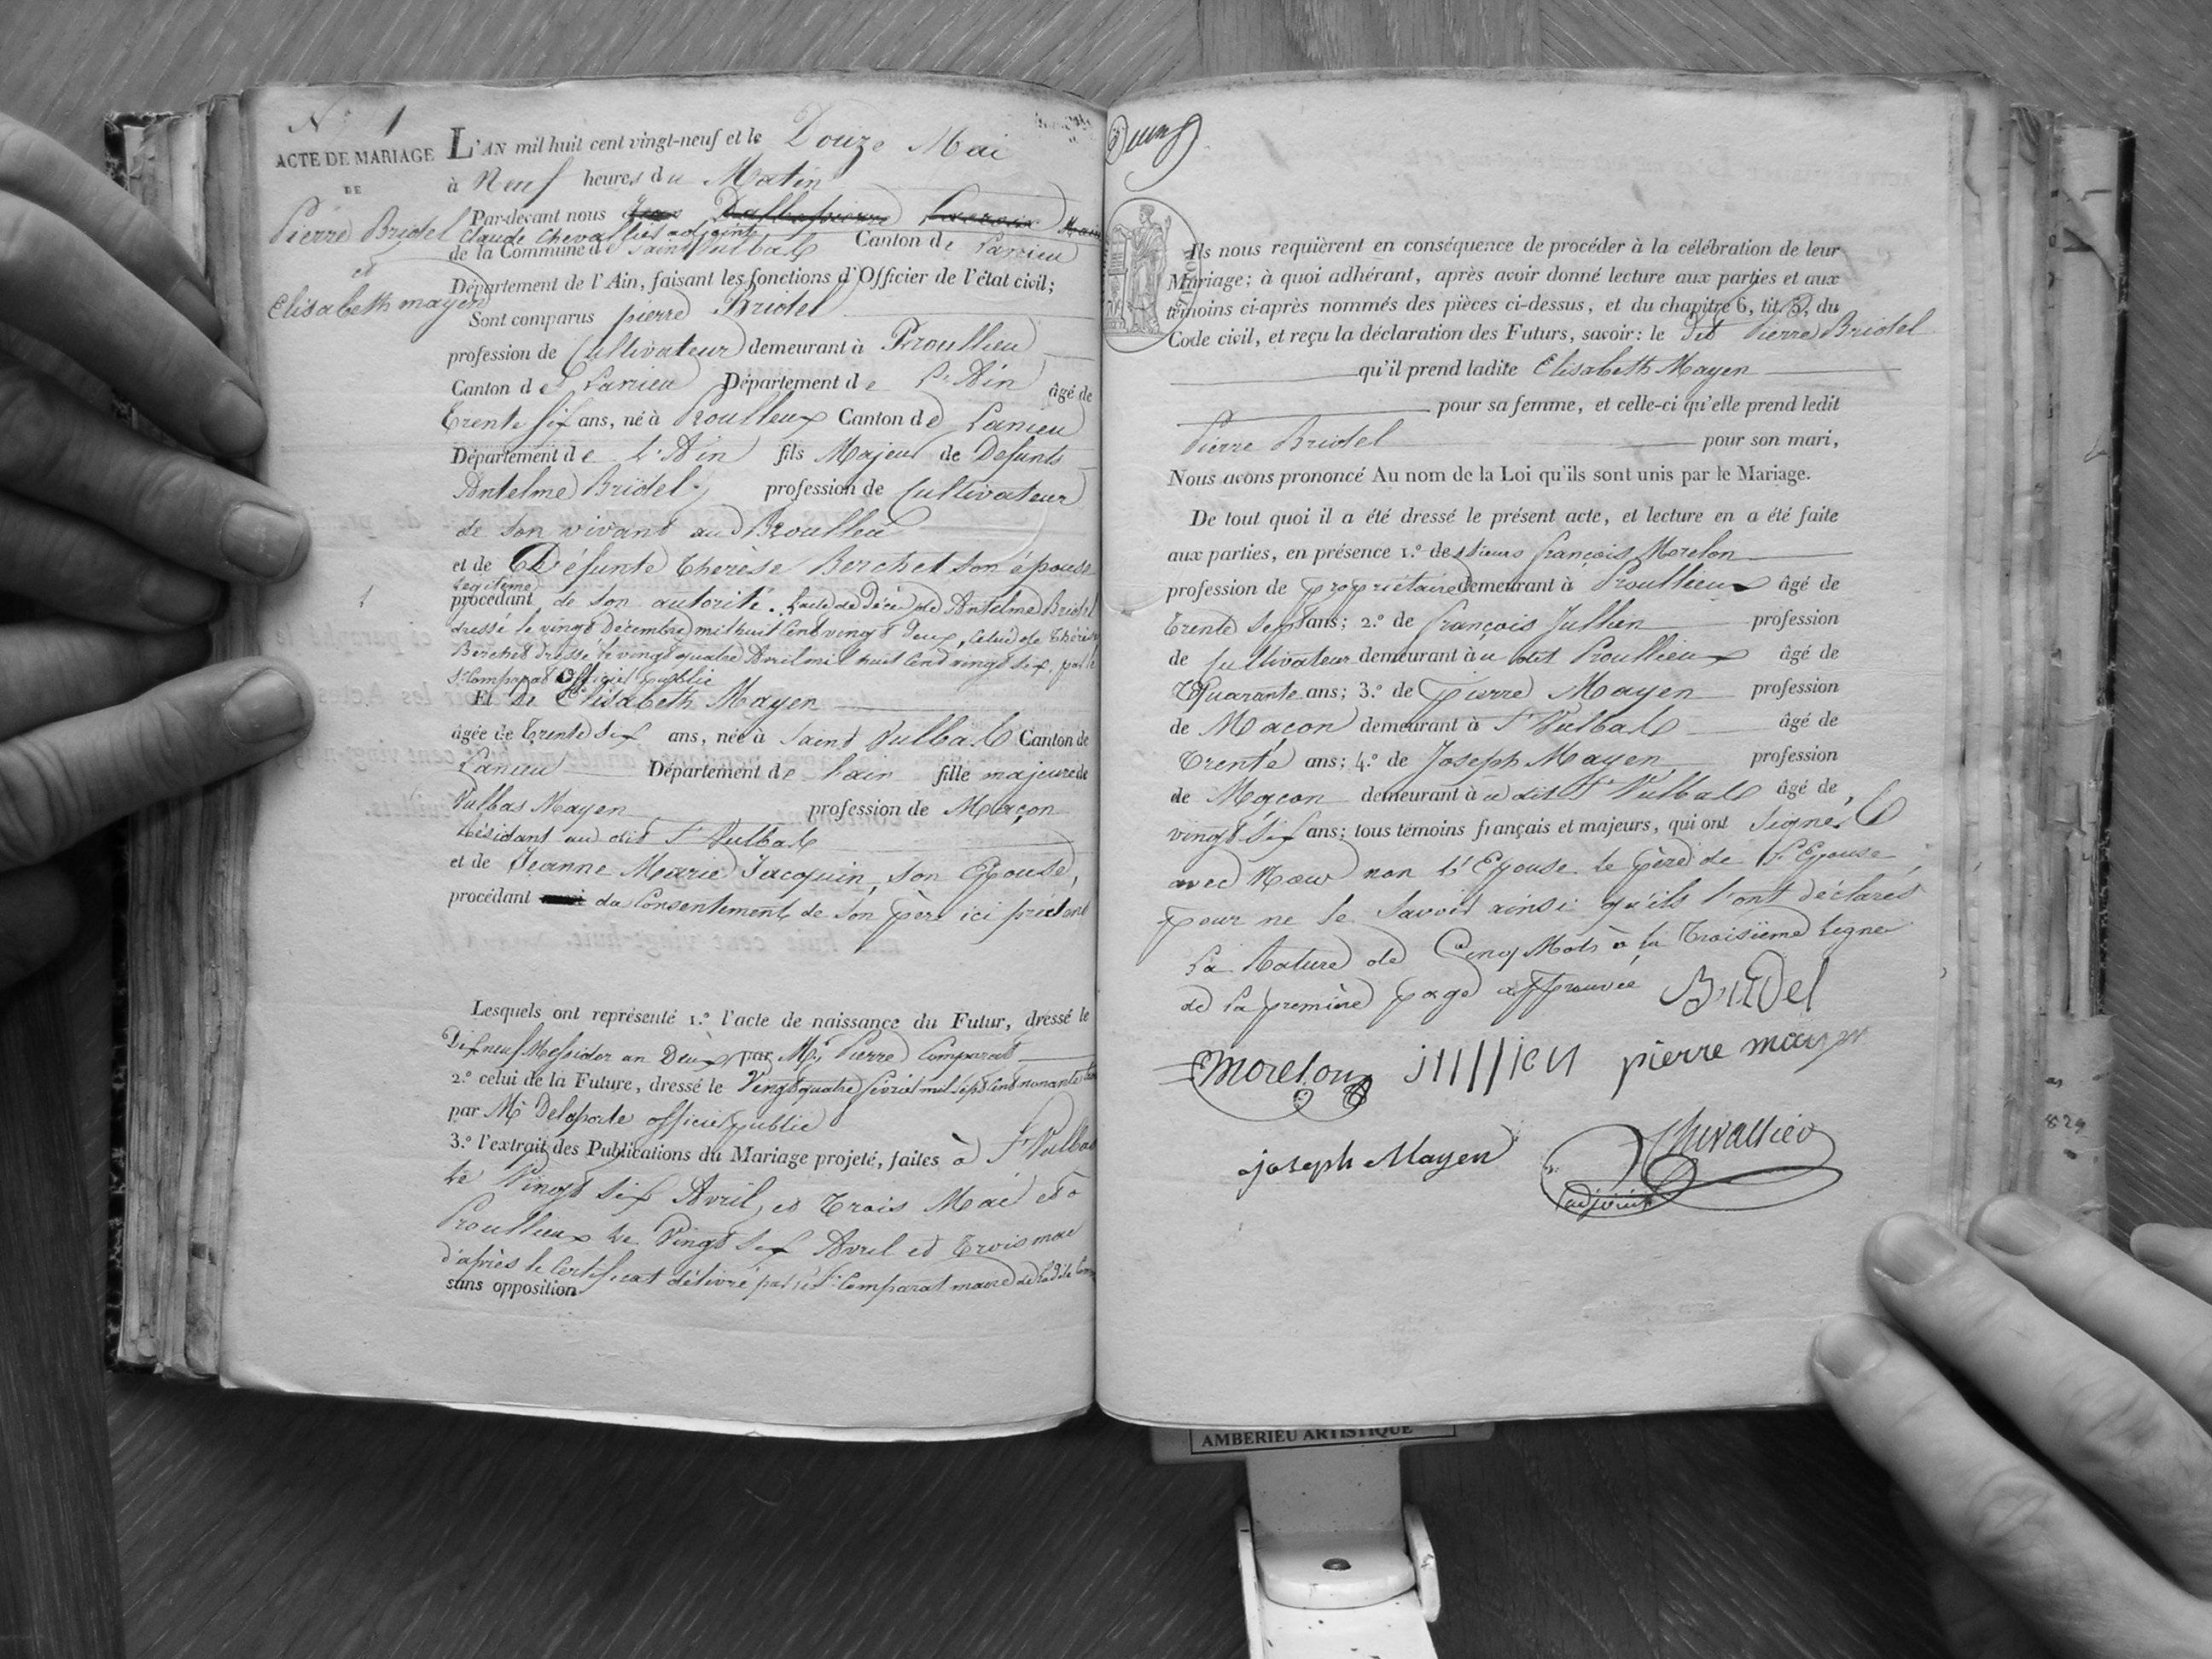 N° 1
ACTE DE MARIAGE
DE
Pierre Bridel
et
Elisabeth mayen
L'AN mil huit cent vingt-neuf et le Douze Mai
à Neuf heures du Matin
Par-devant nous
Claude Chevallier adjoint
de la Commune de Saint Vulbas Canton de Lanieu
Département de l'Ain, faisant les fonctions d'Officier de l'état civil;
Sont comparus pierre Bridel
profession de Cultivateur demeurant à Proullieu
Canton de Lanieu Département de L'Ain âgé de
Trente six ans, né à Proullieux Canton de Lanieu
Département de L'Ain fils Majeur de Defunts
Antelme Bridel profession de Cultivateur
de son vivant au Proullieu
et de Défunte Therèse Berchet son épouse
legitime
procédant de son autorité. Lacte de Décè de Antelme Bridel
dressé le vingt Décembre mil huit Cent vingt Deux, Celui de Thérèse
Berchet dressé le vingt quatre Avril mil huit Cent vingt six, par le
Sr Comparat Officier public
Et de Elisabeth Mayen
âgée de Trente six ans, née à Saint Vulbas Canton de
Lanieu Département de Lain fille majeure de
Vulbas Mayen profession de Maçon
Résidant au dit St Vulbas
et de Jeanne Marie Jacquin, son Epouse,
procédant du Consentement de son père ici présent
Lesquels ont représenté 1.° l'acte de naissance du Futur, dressé le
Dix neuf Messidor an Deux par Mr Pierre Comparat
2.° celui de la Future, dressé le Vingt quatre févriel mil sept Cent nonante
par Mr Delaporte officier public
3.° l'extrait des Publications du Mariage projeté, faites à St Vulbas
Le Vingt six Avril, et Trois Mai et à
Proullieux Le Vingt six Avril et Trois mai
d'après le Certificat délivré par le Sr Comparat maire de la dite
sans opposition
Ils nous requièrent en conséquence de procéder à la célébration de leur
Mariage; à quoi adhérant, après avoir donné lecture aux parties et aux
témoins ci-après nommés des pièces ci-dessus, et du chapitre 6, tit. 5, du
Code civil, et reçu la déclaration des Futurs, savoir: le dit Pierre Bridel
qu'il prend ladite Elisabeth Mayen
pour sa femme, et celle-ci qu'elle prend ledit
Pierre Bridel pour son mari,
Nous avons prononcé Au nom de la Loi qu'ils sont unis par le Mariage.
De tout quoi il a été dressé le présent acte, et lecture en a été faite
aux parties, en présence 1.° des sieurs françois Morelon
profession de propriétaire demeurant à Proullieux âgé de
Trente Sept ans; 2.° de françois Jullien profession
de Cultivateur demeurant à u dit Proullieux âgé de
Quarante ans; 3.° de Pierre Mayen profession
de Maçon demeurant à St Vulbas âgé de
Trente ans; 4.° de Joseph Mayen profession
de Maçon demeurant à u dit St Vulbas âgé de
vingt six ans; tous témoins français et majeurs, qui ont Signés
avec Nous non L'Epouse Le père de L'Epouse
pour ne le Savoir ainsi qu'ils l'ont déclarés
La Rature de Cinq Mots à la Troisième Ligne
de la première page approuvée
Bridel
Morelon jullien pierre mayen
joseph Mayen Chevallier
adjoint
829
AMBERIEU ARTISTIQUE